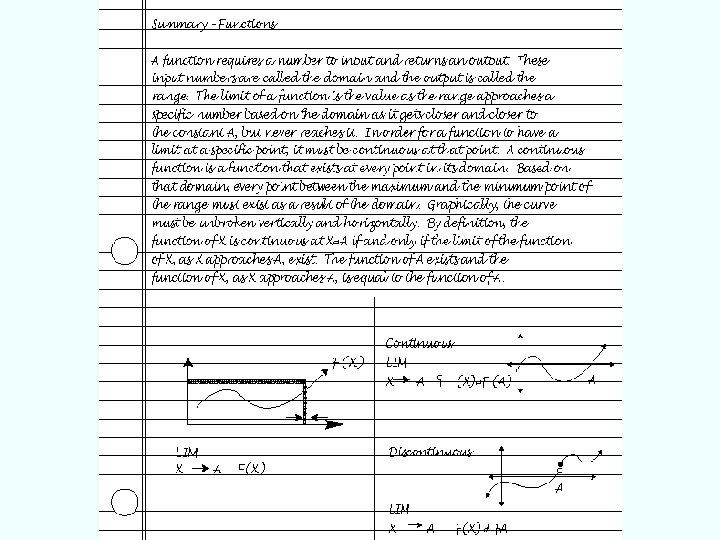 Summary - Functions
A function requires a number to input and returns an output. These
input numbers are called the domain and the output is called the
range. The limit of a function is the value as the range approaches a
specific number based on the domain as it gets closer and closer to
the constant A, but never reaches it. In order for a function to have a
limit at a specific point, it must be continuous at that point. A continuous
function is a function that exists at every point in its domain. Based on
that domain, every point between the maximum and the minumum point of
the range must exist as a result of the domain. Graphically, the curve
must be unbroken vertically and horizontally. By definition, the
function of X is continuous at X=A if and only if the limit of the function
of X, as X approaches A, exist. The function of A exists and the
function of X, as X approaches A, is equal to the function of A.
F(X)
LIM
X → A F(X)
Continuous
LIM
X → A F (X)=F(A)
A
Discontinuous
A
LIM
X → A